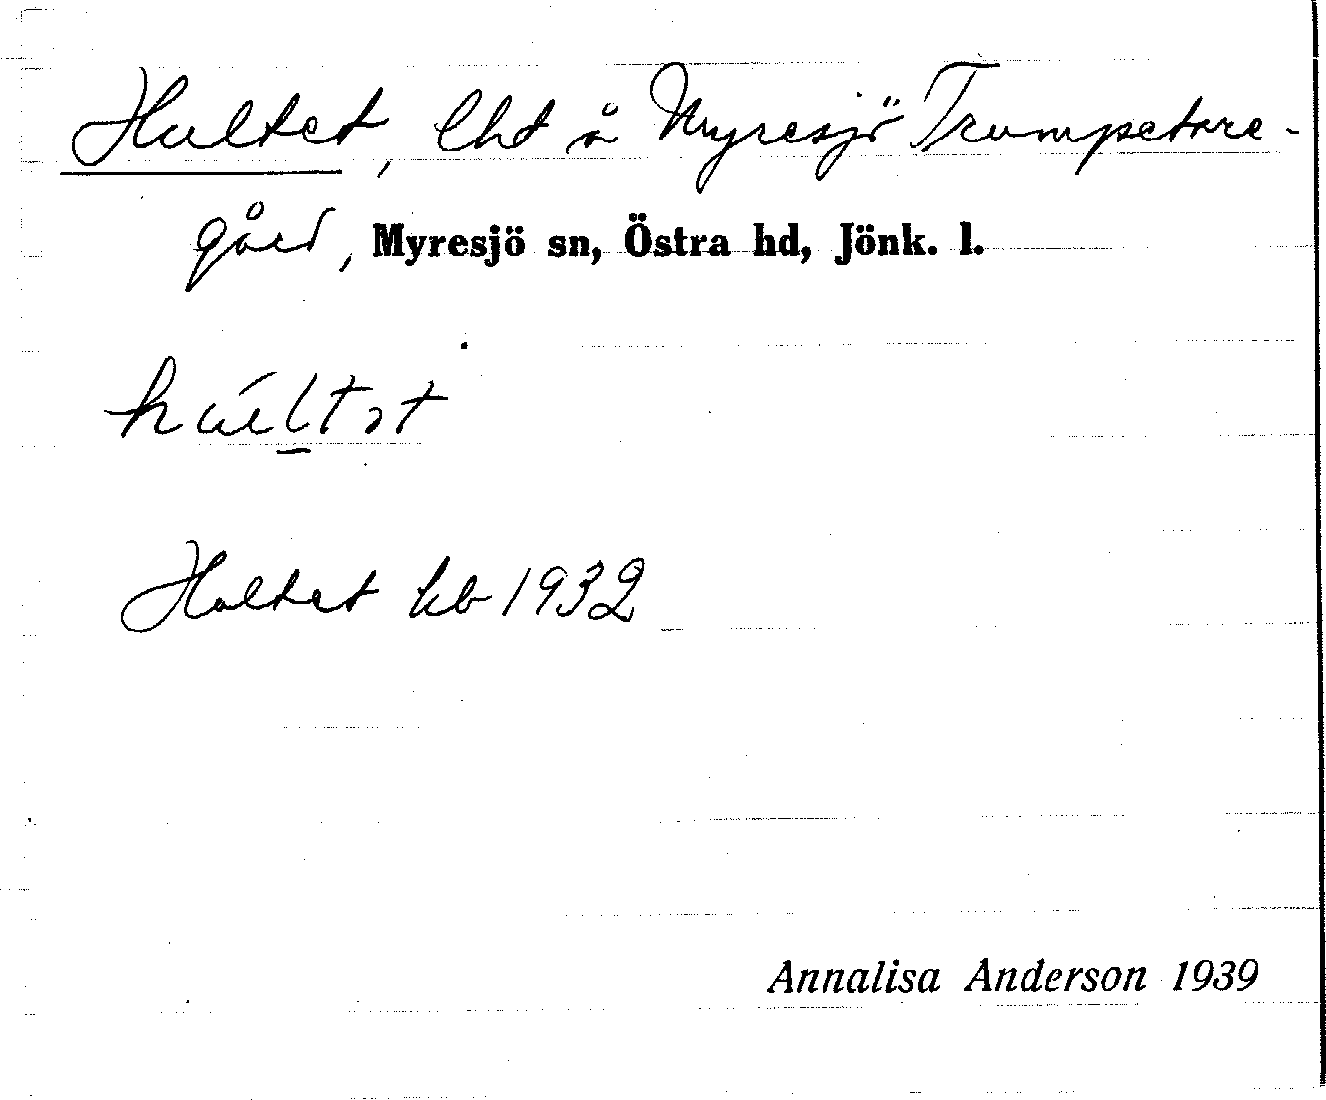 Hultet, lht å Myresjö Trumpetare-
gård, Myresjö sn, Östra hd, Jönk. l.
Hultet kb 1932
Annalisa Anderson 1939